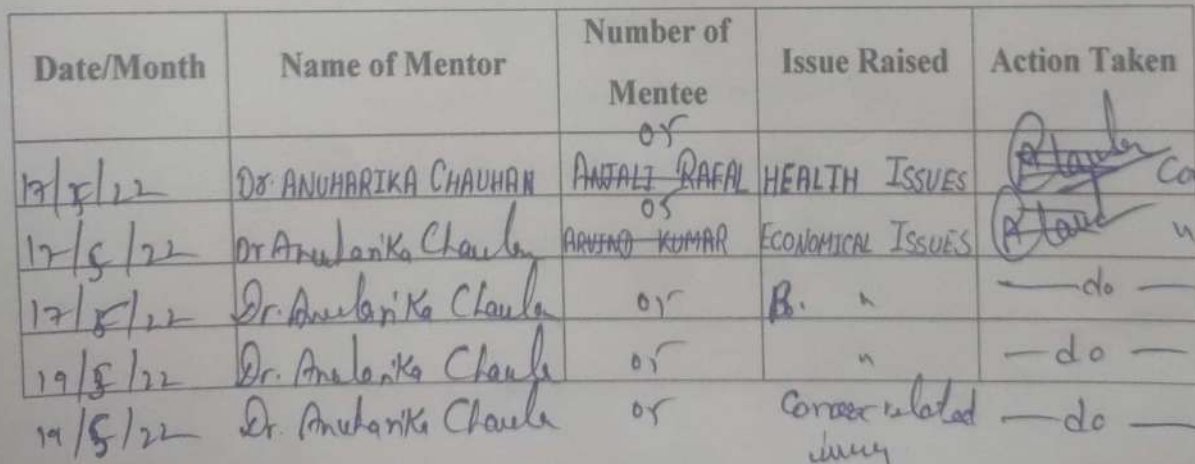 Date/Month Name of Mentor Number of Mentee Issue Raised Action Taken
17/5/22 Dr. ANUHARIKA CHAUHAN or ANJALI RAFAL HEALTH ISSUES Co
17/5/22 Dr Anuharika Chauhan 05 ARVIND KUMAR ECONOMICAL ISSUES "
17/5/22 Dr. Anuharika Chauhan or " — do —
19/5/22 Dr. Anuharika Chauhan or " — do —
19/5/22 Dr. Anuharika Chauhan or Career related — do —